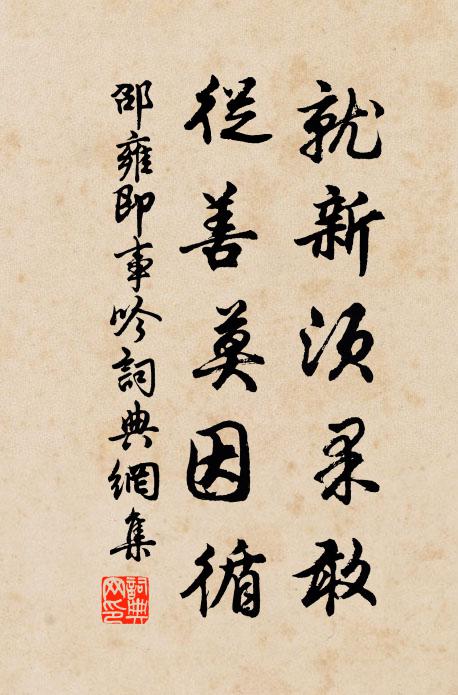 就新須果敢
從善莫因循
邵雍即事吟詞典網集
詞典網印